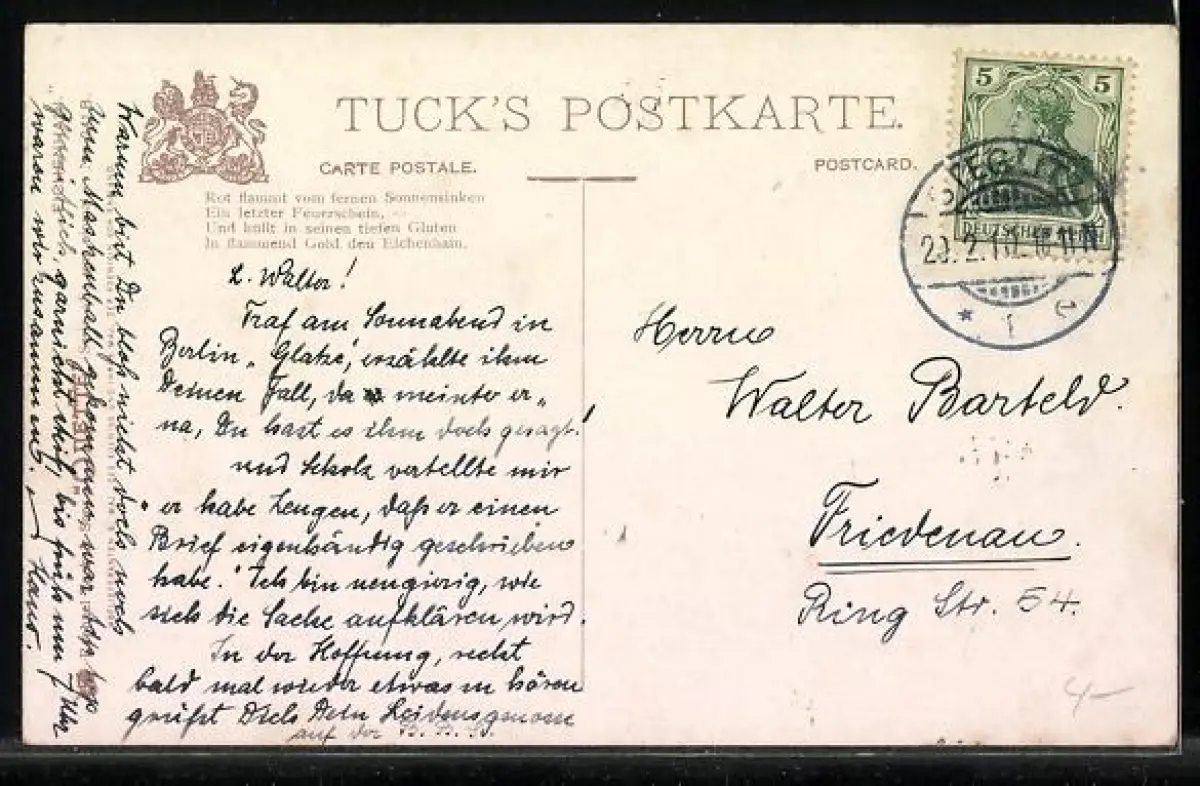 TUCK'S POSTKARTE.
CARTE POSTALE.
POSTCARD.
Rot flammt vom fernen Sonnensinken
Ein letzter Feuerschein,
Und hüllt in seinen tiefen Gluten
In flammend Gold den Eichenhain.
5 5
DEUTSCHES REICH
STEGLITZ
2.10.
* 1 e
L. Walter!
Traf am Sonnabend in
Berlin „Glatze", erzählte ihm
Deinen Fall, da meinte er „
na, Du hast es ihm doch gesagt!
und Scholz vertellte mir
"er habe Zeugen, daß er einen
Brief eigenhändig geschrieben
habe." Ich bin neugierig, wie
sich die Sache aufklären wird.
In der Hoffnung, recht
bald mal wieder etwas zu hören
grüßt Dich Dein Leidensgenosse
auf der
Warum bist Du bloß nicht doch noch
zum Maskenball gekommen, war
gemütlich, garnicht steif, bis früh um 7 Uhr
waren wir zusammen.
Hans.
Herrn
Walter Barteld.
Friedenau.
Ring Str. 54.